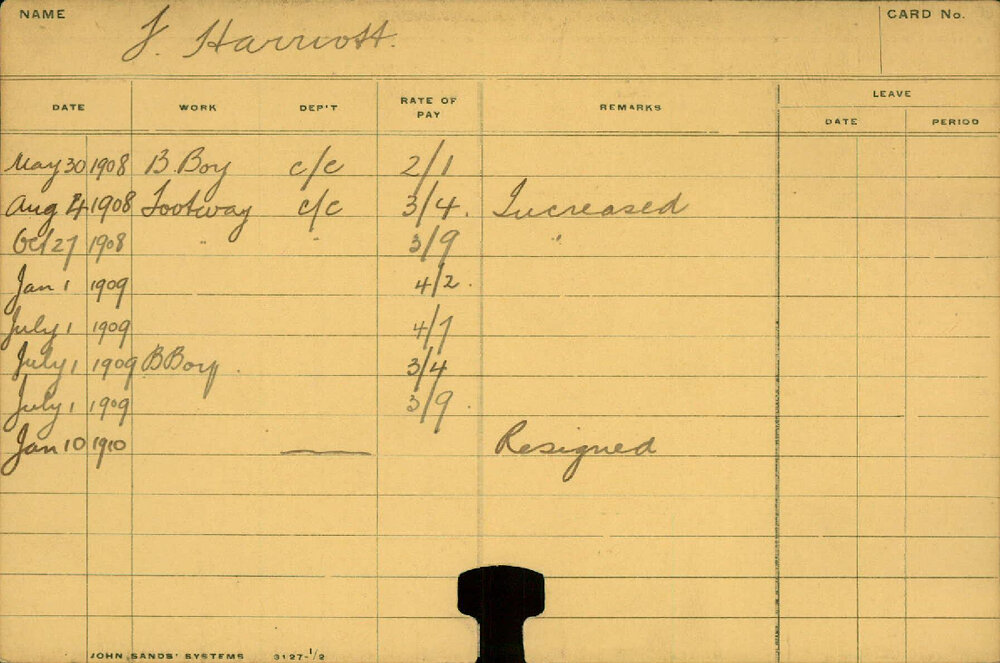 NAME
J. Harriott.
CARD No.
DATE WORK DEP'T RATE OF PAY REMARKS LEAVE
DATE PERIOD
May 30 1908 B. Boy c/c 2/1
Aug 4 1908 Footway c/c 3/4. Increased
Oct 27 1908 " " 3/9 "
Jan 1 1909 4/2.
July 1 1909 4/7
July 1 1909 B Boy. 3/4
July 1 1909 3/9.
Jan 10 1910 Resigned
JOHN SANDS' SYSTEMS 3127-1/2